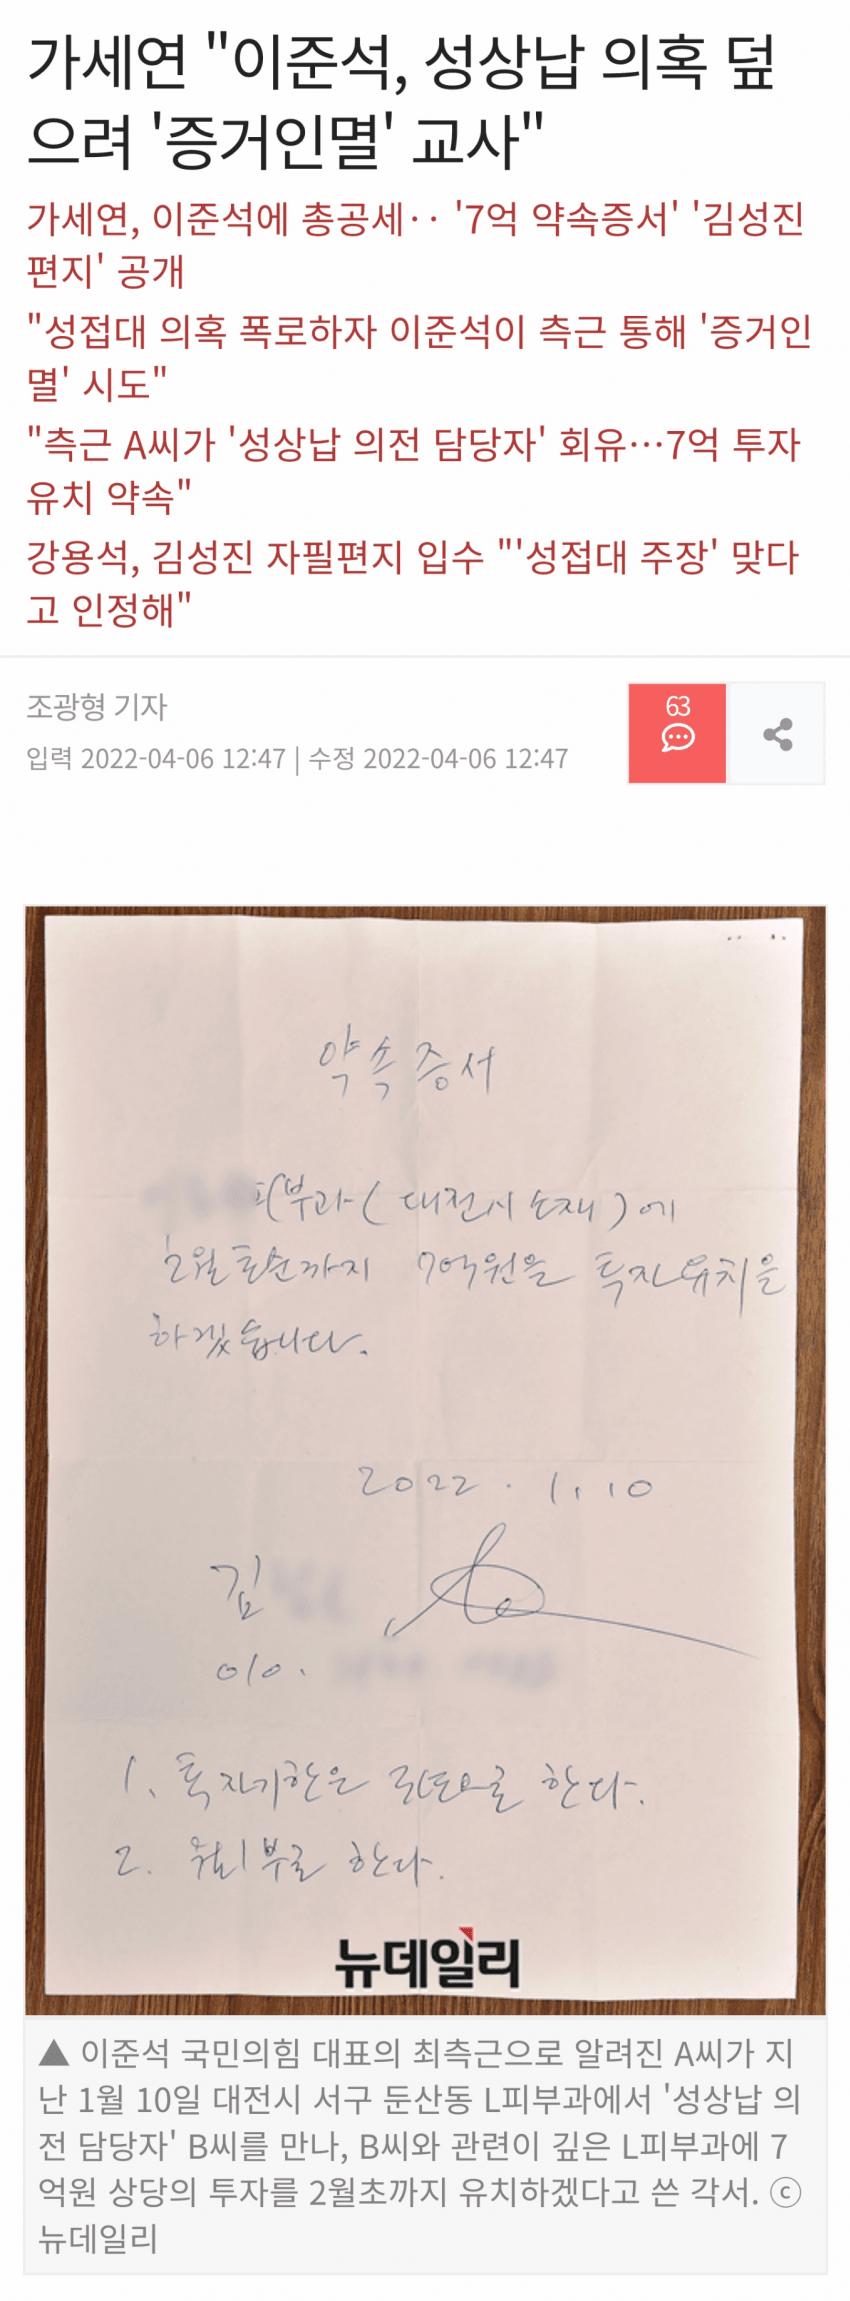 가세연 "이준석, 성상납 의혹 덮
으려 '증거인멸' 교사"
가세연, 이준석에 총공세‥ '7억 약속증서' '김성진
편지' 공개
"성접대 의혹 폭로하자 이준석이 측근 통해 '증거인
멸' 시도"
"측근 A씨가 '성상납 의전 담당자' 회유…7억 투자
유치 약속"
강용석, 김성진 자필편지 입수 "'성접대 주장' 맞다
고 인정해"
조광형 기자
63
입력 2022-04-06 12:47 | 수정 2022-04-06 12:47
약속증서
피부과 ( 대전시 소재 ) 에
2월 초순까지 7억원을 투자유치를
하겠습니다.
2022 . 1. 10
김
010.
1. 투자기한은 으로 한다.
2. 한다.
뉴데일리
▲ 이준석 국민의힘 대표의 최측근으로 알려진 A씨가 지
난 1월 10일 대전시 서구 둔산동 L피부과에서 '성상납 의
전 담당자' B씨를 만나, B씨와 관련이 깊은 L피부과에 7
억원 상당의 투자를 2월초까지 유치하겠다고 쓴 각서. ⓒ
뉴데일리